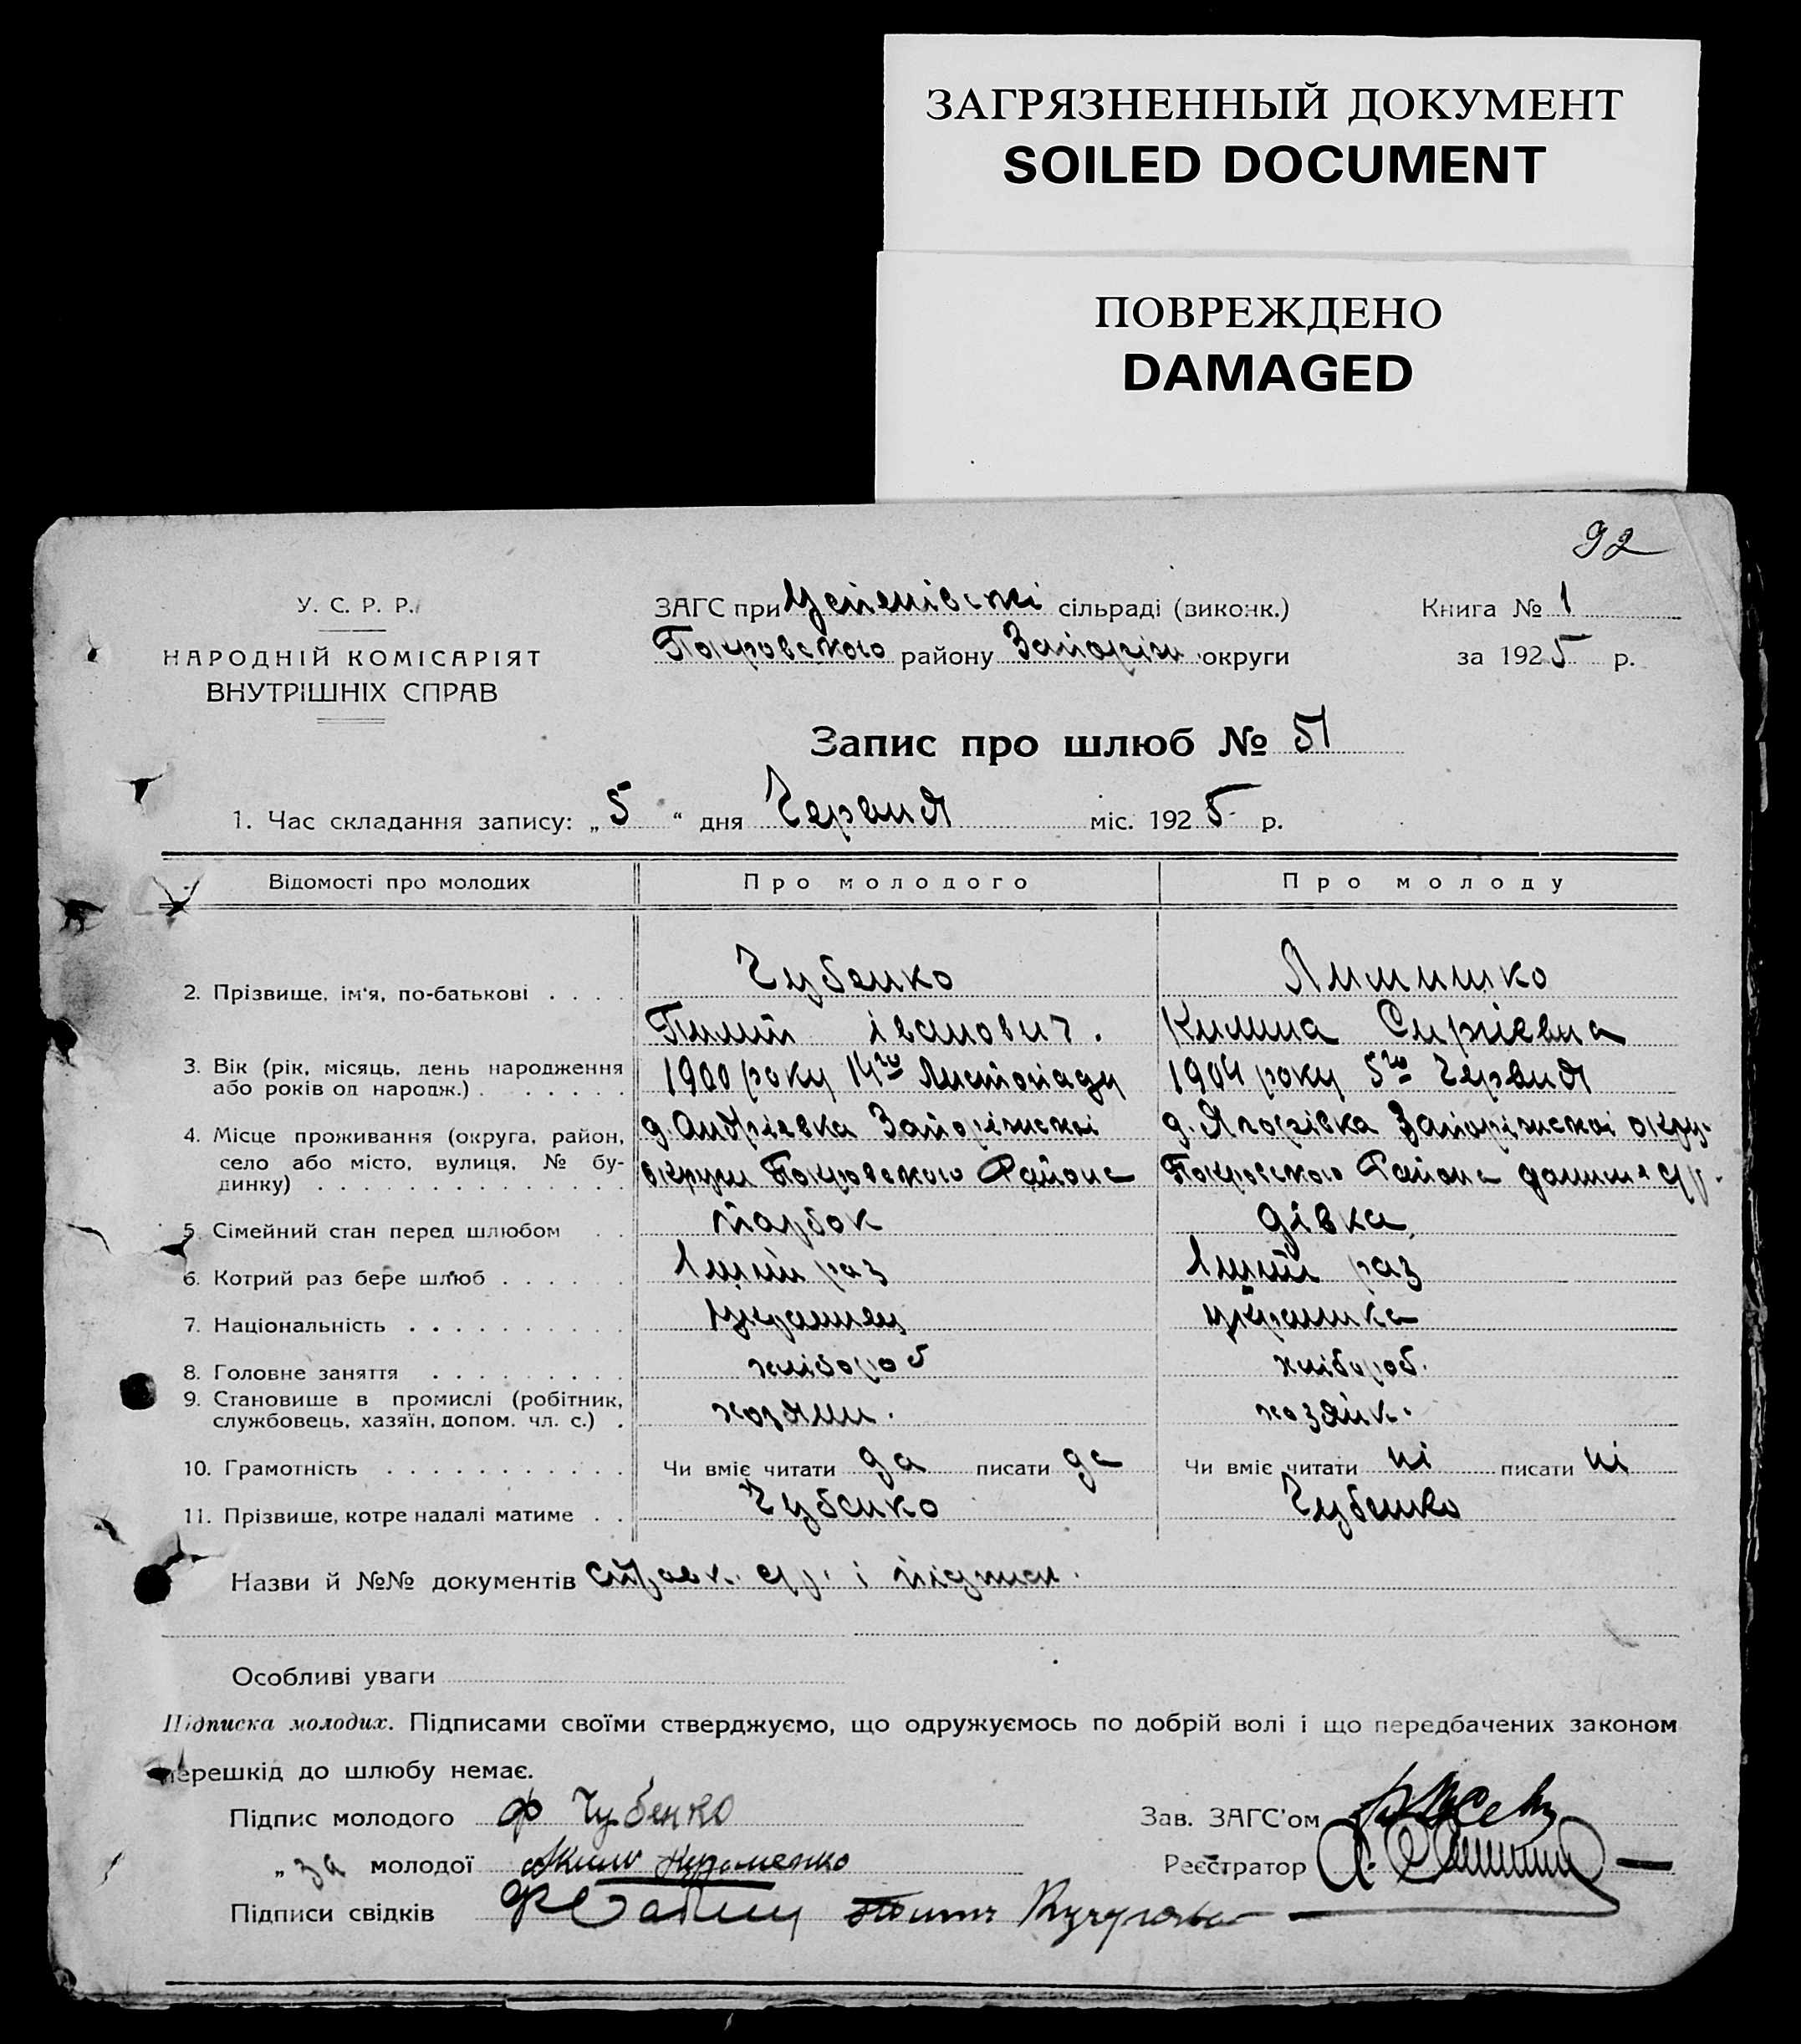 ЗАГРЯЗНЕННЫЙ ДОКУМЕНТ
SOILED DOCUMENT
ПОВРЕЖДЕНО
DAMAGED
92
У. С. Р. Р.
НАРОДНІЙ КОМІСАРІЯТ
ВНУТРІШНІХ СПРАВ
ЗАГС при Успенівскі сільраді (виконк.)
Покровского району Запоріж округи
Книга № 1
за 1925 р.
Запис про шлюб № 51
1. Час складання запису: „5“ дня Червня міс. 1925 р.
Відомості про молодих Про молодого Про молоду
2. Прізвище, ім'я, по-батькові . . . . Чубенко
Іванович. Килина Сиргіевна
3. Вік (рік, місяць, день народження або років од народж.) . . . . . . 1900 року 14го Листопаду 1904 року 5го Червня
4. Місце проживання (округа, район, село або місто, вулиця, № будинку) . . . . . д. Андріевка Запоріжскоі округи Покровского Району д. Запоріжскоі окру. Покровского Району
5. Сімейний стан перед шлюбом . . парубок дівка
6. Котрий раз бере шлюб . . . . . . 1ший раз 1ший раз
7. Національність . . . . . . . . . . Украинец украинка
8. Головне заняття . . . . . . . . . хлібороб хлібороб.
9. Становище в промислі (робітник, службовець, хазяїн, допом. чл. с.) . хозяин. хозяйк.
10. Грамотність . . . . . . . . . . . Чи вміє читати да писати да Чи вміє читати ні писати ні
11. Прізвище, котре надалі матиме . . Чубенко Чубенко
Назви й №№ документів справк. с/р. і підписи.
Особливі уваги
Підписка молодих. Підписами своїми стверджуємо, що одружуємось по добрій волі і що передбачених законом
перешкід до шлюбу немає.
Підпис молодого Ф Чубенко
Зав. ЗАГС'ом
„ за молодої
Реєстратор
Підписи свідків